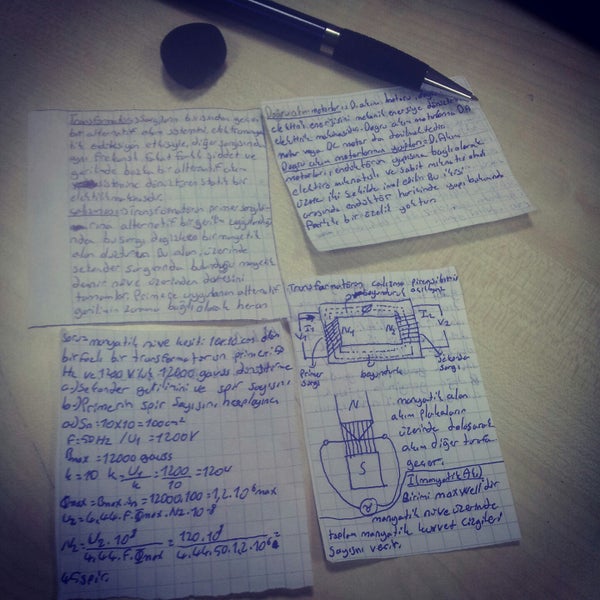 Transformatör: Sargıların birisinden geçen
bir alternatif akım sistemini elektromanye
tik endüksiyon etkisiyle, diğer sargısında
aynı frekanslı fakat farklı şiddet ve
gerilimde başka bir alternatif akım
sistemine dönüştüren statik bir
elektrik makinasıdır.
Transformatörün primer sargıla
rına alternatif bir gerilim uygulandığı
nda, bu sargı değişken bir manyetik
alan oluşturur. Bu alan, üzerinde
sekonder sargısınında bulunduğu manyetik
demir nüve üzerinden devresini
tamamlar. Primere uygulanan alternatif
gerilimin zamana bağlı olarak her an
Doğru akım motorları: D. akım motoru,
elektrik enerjisini mekanik enerjiye dönüştüren
elektrik makinasıdır. Doğru akım motorlarına D.A
motor veya DC motor da denilmektedir.
Doğru akım motorlarının yapıları: D. Akım
motorları, endüktörün yapısına bağlı olarak
elektro mıknatıslı ve sabit mıknatıslı olmak
üzere iki şekilde imal edilir. Bu ikisi
arasında endüktör haricinde yapı bakımında
farklı bir özellik yoktur.
Soru= manyatik nüve kesiti 10x10 cm olan
bir fazlı bir transformatörün primeri 50
Hz ve 1200 V luk 12000 gauss
a-) Sekonder gerilimini ve spir sayısını
b-) Primerin spir sayısını hesaplayınız
a-) Sn = 10x10 = 100cm²
F = 50 Hz / U1 = 1200V
Bmax = 12000 gauss
k = 10 k = U1/k = 1200/10 = 120V
Φmax = Bmax.Sn = 12000.100 = 1,2.10⁶ max
U2 = 4,44.F.Φmax.N2.10⁻⁸
N2 = U2.10⁸/4,44.F.Φmax = 120.10⁸/4,44.50.1,2.10⁶ =
45 spir.
Transformatörün çalışma pirensibinin
açıklaması
I1 N1 N2 I2
V1 V2
Primer
Sargı
boyunduruk
Sekonder
Sargı
N
S
manyatik alan
akım plakaların
üzerinde dolaşarak
akım diğer tarafa
geçer.
1) manyatik Akı
Birimi maxwelldir
manyatik nüve üzerinde
toplam manyatik kuvvet çizgileri
sayısını verir.